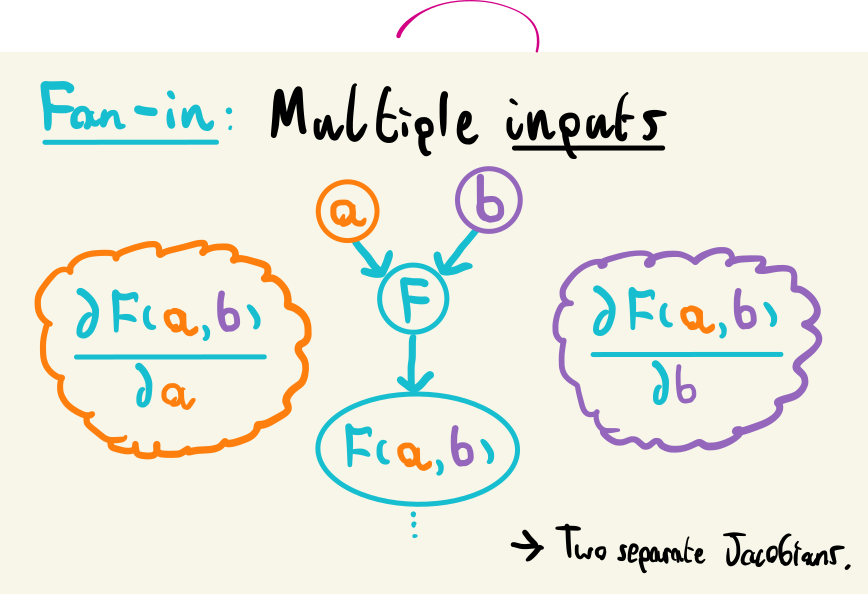 Fan-in: Multiple inputs
a b
F
∂F(a,b)
∂a
∂F(a,b)
∂b
F(a,b)
→ Two separate Jacobians.